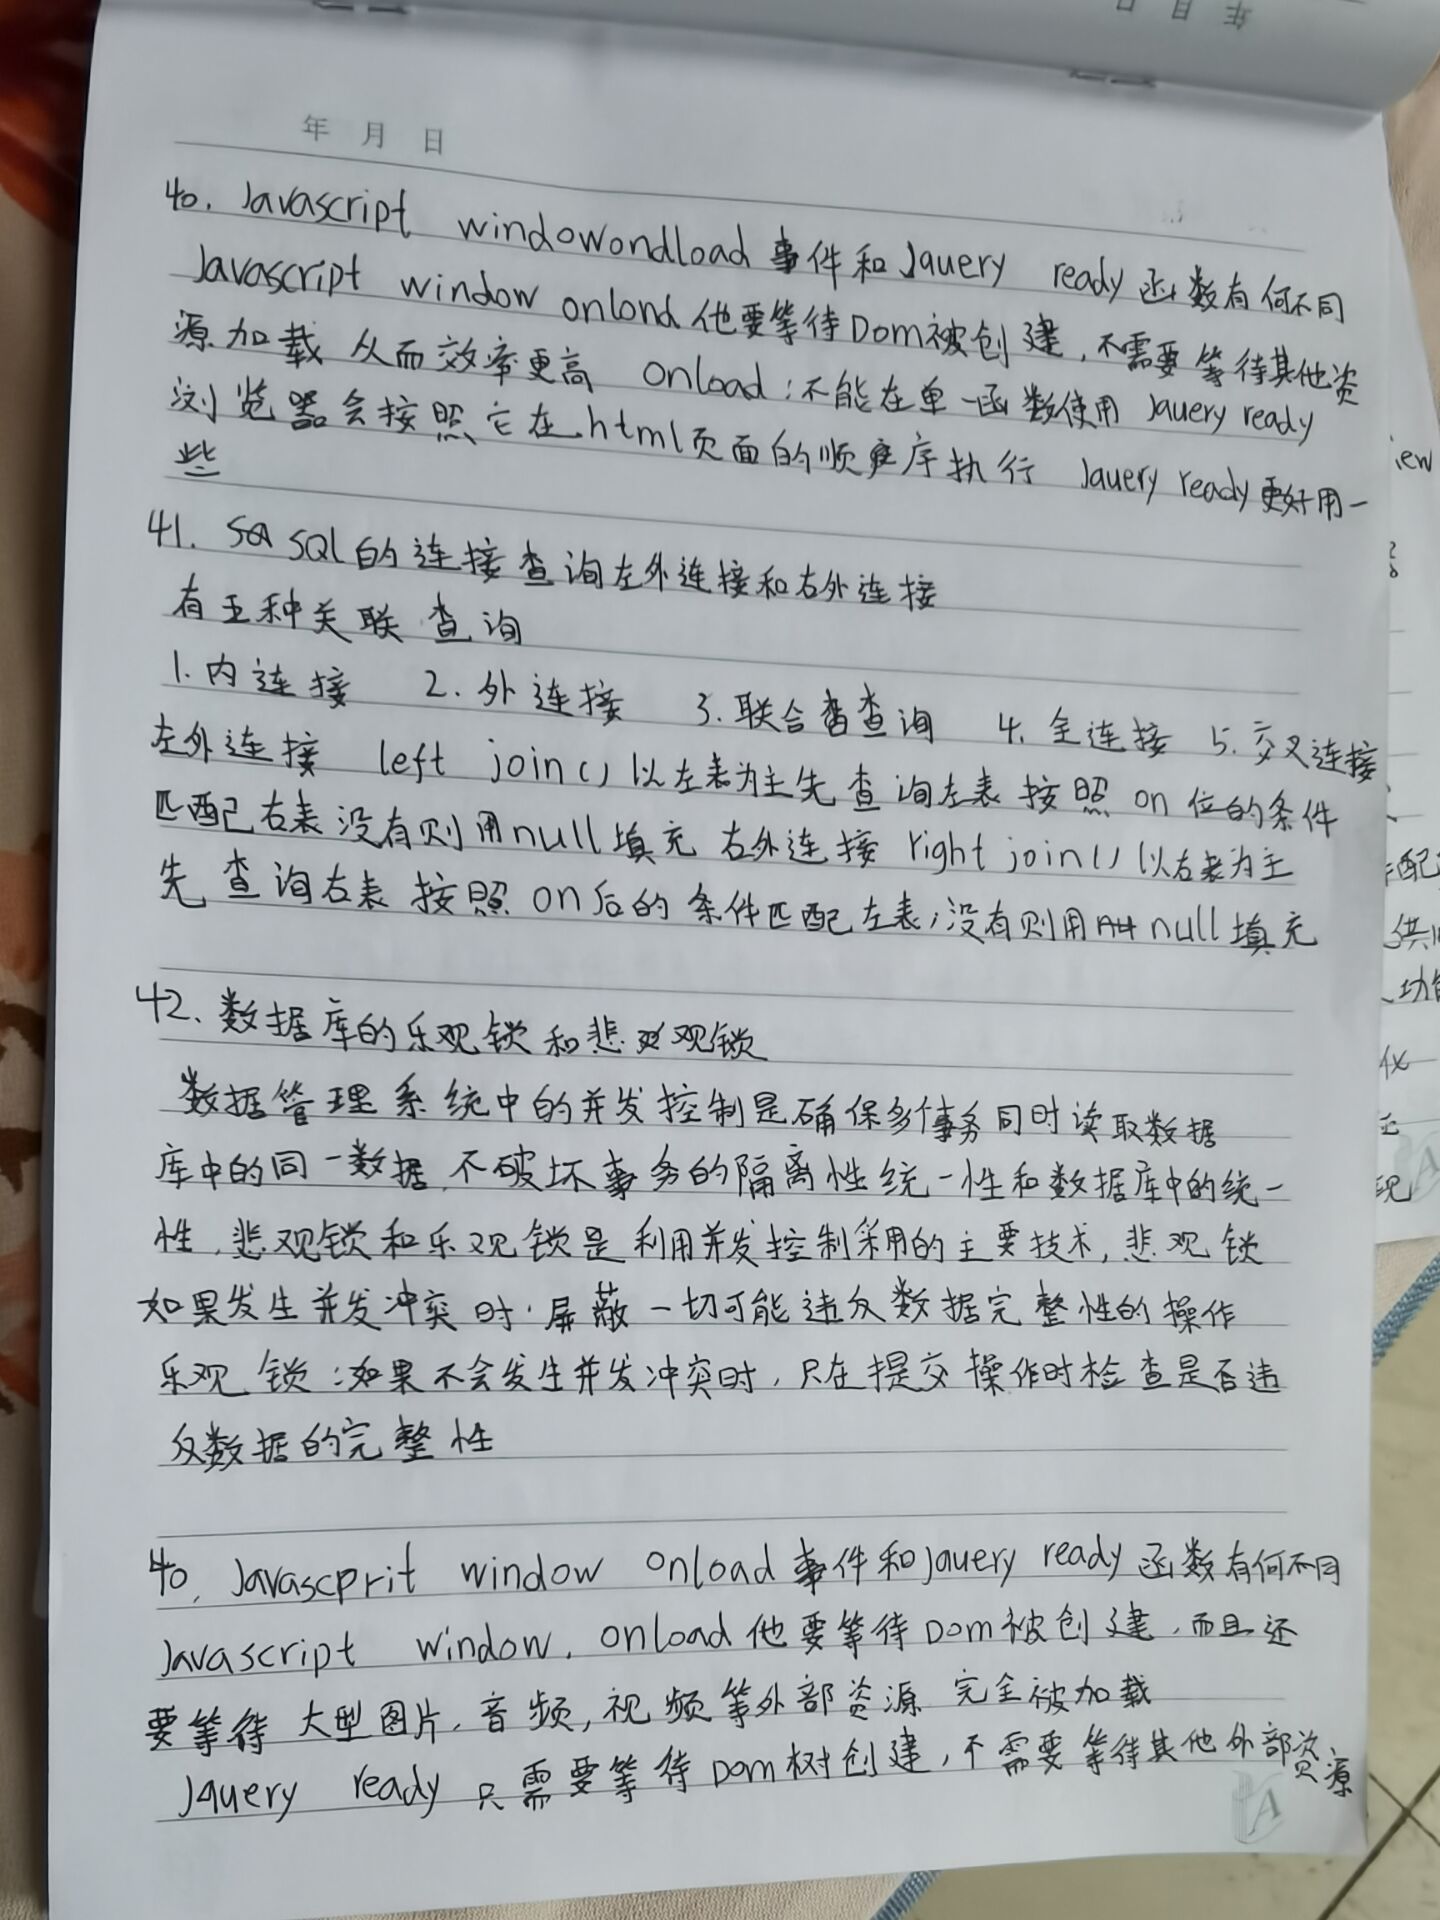 年 月 日
40. Javascript windowondload 事件和Jauery ready 函数有何不同
Javascript window onlond 他要等待Dom被创建,不需要等待其他资
源加载 从而效率更高 onload:不能在单一函数使用 Jauery ready
浏览器会按照它在html页面的顺序执行 Jauery ready更好用一
些
41. SQL的连接查询左外连接和右外连接
有五种关联查询
1.内连接 2.外连接 3.联合查询 4.全连接 5.交叉连接
左外连接 left join() 以左表为主先查询左表按照on位的条件
匹配右表没有则用null填充 右外连接 right join() 以右表为主
先查询右表按照on后的条件匹配左表,没有则用null填充
42、数据库的乐观锁和悲观锁
数据管理系统中的并发控制是确保多个事务同时读取数据
库中的同一数据,不破坏事务的隔离性统一性和数据库中的统一
性,悲观锁和乐观锁是利用并发控制采用的主要技术,悲观锁
如果发生并发冲突时,屏蔽一切可能违反数据完整性的操作
乐观锁:如果不会发生并发冲突时,只在提交操作时检查是否违
反数据的完整性
40. Javascprit window onload 事件和Jauery ready 函数有何不同
Javascript window. onload 他要等待Dom被创建,而且还
要等待 大型图片,音频,视频等外部资源 完全被加载
Jquery ready 只需要等待Dom树创建,不需要等待其他外部资源